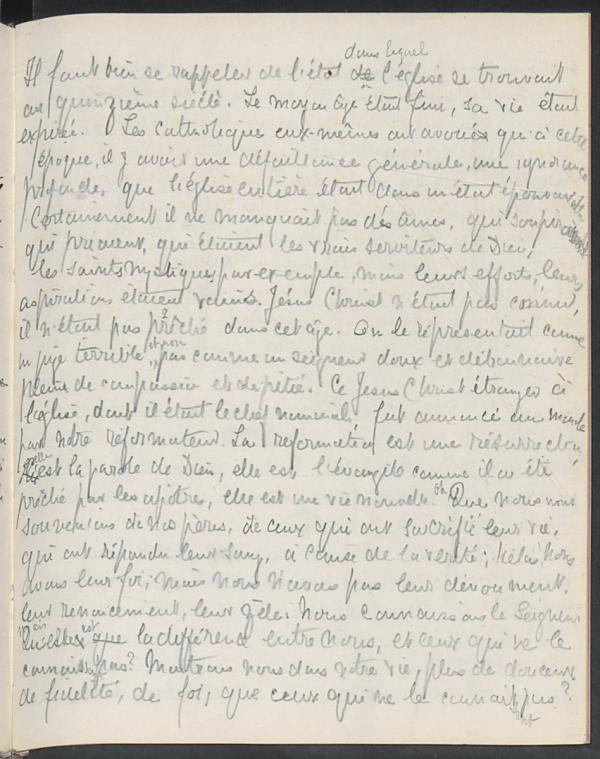 dans lequel
Il faut bien se rappeler de l'état de l'église se trouvait
au quinzième siècle. Le moyen âge était fini, sa vie était
expirée. Les catholiques eux-mêmes ont avoué qu'à cette
époque, il y avait une défaillance générale, une ignorance
profonde, que l'église entière était dans un état épouvantable.
Certainement il ne manquait pas des âmes, qui soupiraient
qui priaient, qui étaient les vrais serviteurs de Dieu,
les saints mystiques par exemple, mais leurs efforts, leurs
aspirations étaient vaines. Jésus Christ n'était pas connu,
il n'était pas prêché dans cet âge. On le représentait comme
un juge terrible, et non pas comme un seigneur doux et débonnaire
pleine de compassion et de pitié. Ce Jésus Christ étranger à
l'église, dont il était le chef nominal, fut annoncé au monde
par notre réformateur. La reformation est une résurrection,
elle est la parole de Dieu, elle est l'évangile comme il a été
prêché par les apôtres, elle est une vie nouvelle. Oh Que nous nous
souvenions de nos pères, de ceux qui ont sacrifié leur vie,
qui ont répandu leur sang, à cause de la verité; hélas, nous
avons leur foi, mais nous n'avons pas leur dévouement,
leur renoncement, leur zèle. Nous connaissons le Seigneur
que la différence entre nous, et ceux qui ne le
connaissent pas? Montrons nous dans notre vie, plus de douceur
de fidelité, de foi, que ceux qui ne le connaissent pas?